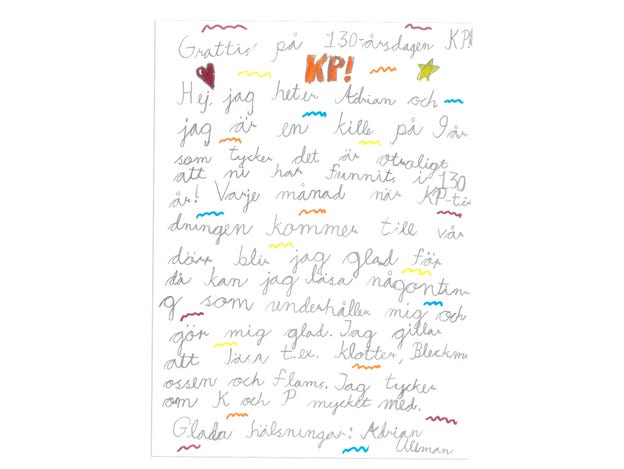 Grattis! på 130-årsdagen KP!
KP!
Hej, jag heter Adrian och
jag är en kille på 9 år
som tycker det är otroligt
att ni har funnits i 130
år! Varje månad när KP-ti
dningen kommer till vår
dörr blir jag glad för
då kan jag läsa någontin
g som underhåller mig och
gör mig glad. Jag gillar
att läsa t.ex. klotter, Bleckm
ossen och flams. Jag tycker
om K och P mycket med.
Glada hälsningar: Adrian